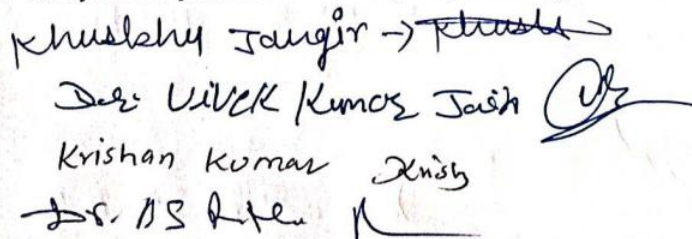 Khuskhu Jangir → Khush
Dr. Vivek Kumar Jain
Krishan Kumar Krish
Dr. AS